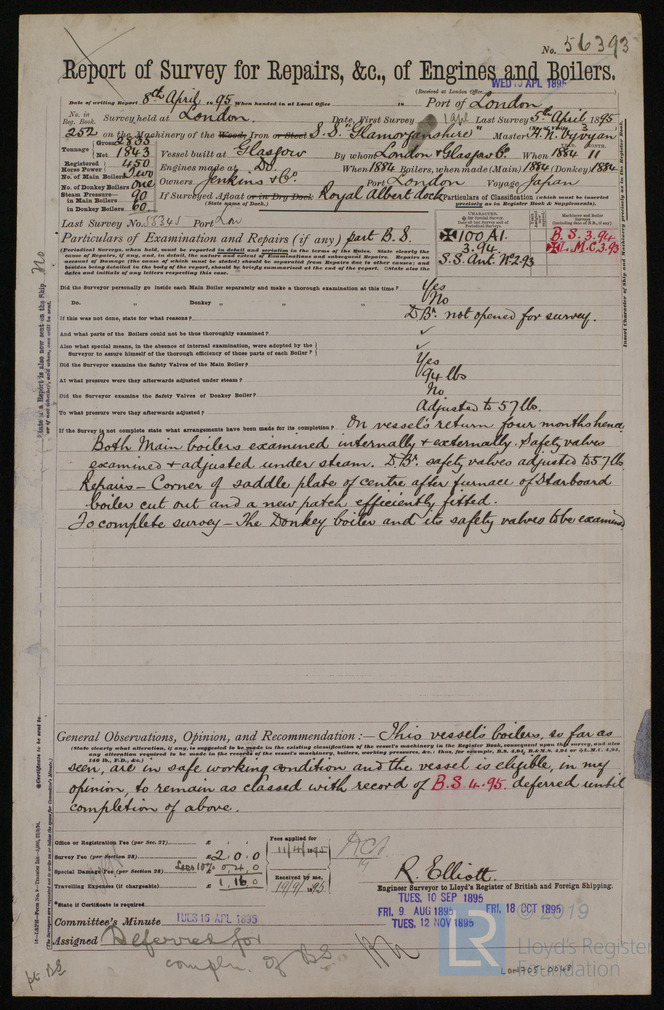 No. 56393
Report of Survey for Repairs, &c., of Engines and Boilers.
(Received at London Office WED 10 APL 1895
Date of writing Report 8th April 1895 When handed in at Local Office 18 Port of London
No. in Reg. Book. Survey held at London. Date, First Survey 1 Apl Last Survey 5th April 1895
252 on the Machinery of the Wood, Iron or Steel S.S. "Glamorganshire" Master H. N. Vyvyan
Tonnage Gross 2835 Net 1843 Vessel built at Glasgow By whom London & Glasgow Co. When 1884 11
Registered Horse Power 450 Engines made at Do. When 1884 Boilers, when made (Main) 1884 (Donkey) 1884
No. of Main Boilers Two
No. of Donkey Boilers One Owners Jenkins & Co. Port London Voyage Japan
Steam Pressure— in Main Boilers 90 If Surveyed Afloat or in Dry Dock Royal Albert dock
in Donkey Boilers 60 (State name of Dock.)
Particulars of Classification (which must be inserted precisely as in Register Book & Supplements).
Last Survey No. 55345 Port Lon
Particulars of Examination and Repairs (if any) part B.S.
✠ 100 A1. 3.94 S.S. Ant. No2-93
B.S. 3.94 ✠ L.M.C. 3.93
(Periodical Surveys, when held, must be reported in detail and seriatim in the terms of the Rules. State clearly the cause of Repairs, if any, and, in detail, the nature and extent of Examinations and subsequent Repairs. Repairs on account of Damage (the cause of which must be stated) should be separated from Repairs due to other causes; and besides being detailed in the body of the report, should be briefly summarised at the end of the report. State also the dates and initials of any letters respecting this case.
Did the Surveyor personally go inside each Main Boiler separately and make a thorough examination at this time? Yes
Do. Donkey " " " " ? No
If this was not done, state for what reasons? D Br. not opened for survey.
And what parts of the Boilers could not be thus thoroughly examined? ✓
Also what special means, in the absence of internal examination, were adopted by the Surveyor to assure himself of the thorough efficiency of those parts of each Boiler? ✓
Did the Surveyor examine the Safety Valves of the Main Boiler? Yes
At what pressure were they afterwards adjusted under steam? 94 lbs
Did the Surveyor examine the Safety Valves of Donkey Boiler? No
To what pressure were they afterwards adjusted? Adjusted to 57 lb.
If the Survey is not complete state what arrangements have been made for its completion? On vessel's return four months hence.
Both Main boilers examined internally & externally. Safety valves
examined & adjusted under steam. D. Br. safety valves adjusted to 57 lb
Repairs – Corner of saddle plate of centre after furnace of Starboard
boiler cut out and a new patch efficiently fitted.
To complete survey – The Donkey boiler and its safety valves to be examined
General Observations, Opinion, and Recommendation:— This vessel's boilers, so far as
(State clearly what alteration, if any, is suggested to be made in the existing classification of the vessel's machinery in the Register Book, consequent upon the survey, and also any alteration required to be made in the records of the vessel's machinery, boilers, working pressures, &c.: thus, for example, B.S. 4,94, B.&M.S. 4,94 or ✠L.M.C. 4,94, 140 lb., F.D., &c.)
seen, are in safe working condition and the vessel is eligible, in my
opinion, to remain as classed with record of B.S. 4.95 deferred until
completion of above.
Office or Registration Fee (per Sec. 27) £
Survey Fee (per Section 28) £ 2.0.0
Special Damage Fee (per Section 28) Less 10% 0 4 0
Travelling Expenses (if chargeable) £ 1.16.0
Fees applied for 11/4/1895
Received by me,
*State if Certificate is required
R. Elliott.
Engineer Surveyor to Lloyd's Register of British and Foreign Shipping.
TUES. 10 SEP 1895
FRI. 9 AUG 1895 FRI. 18 OCT 1895
TUES. 12 NOV 1895
Committee's Minute TUES 16 APL 1895
Assigned Deferred for
compln. of B.S.
pt BS
© 2019
LR Lloyd's Register Foundation
LON705-0048